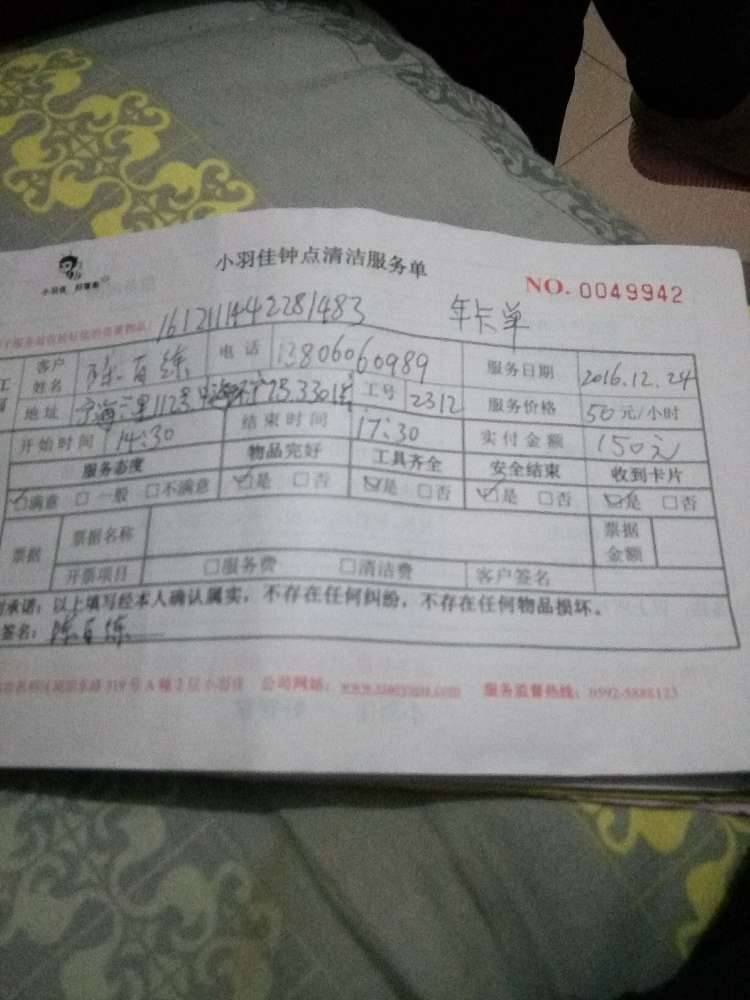 小羽佳钟点清洁服务单
小羽佳 好管家
NO. 0049942
1612111442281483 年卡单
客户姓名 陈百练 电话 13806060989 服务日期 2016.12.24
地址 工号 2312 服务价格 50元/小时
开始时间 14:30 结束时间 17:30 实付金额 150元
服务态度 物品完好 工具齐全 安全结束 收到卡片
☑满意 □一般 □不满意 ☑是 □否 ☑是 □否 ☑是 □否 ☑是 □否
票据 票据名称 票据金额
开票项目 □服务费 □清洁费 客户签名
承诺：以上填写经本人确认属实，不存在任何纠纷，不存在任何物品损坏。
签名：陈百练
319号A幢2层小羽佳 公司网站： 服务监督热线：